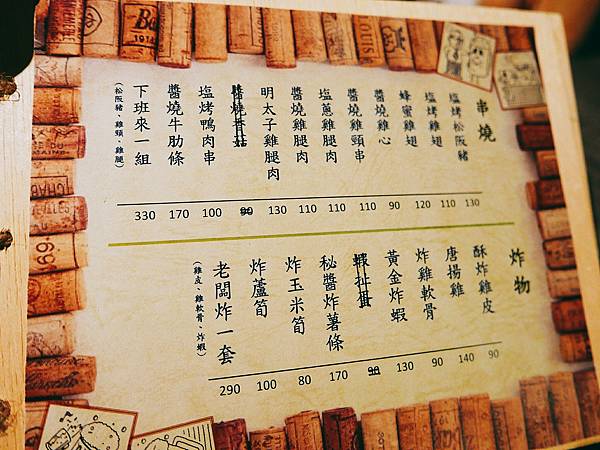 串燒
塩烤松阪豬 130
塩烤雞翅 110
蜂蜜雞翅 120
醬燒雞心 90
醬燒雞頸串 110
塩蔥雞腿肉 110
醬燒雞腿肉 110
明太子雞腿肉 130
醬燒香菇 90
塩烤鴨肉串 100
醬燒牛肋條 170
下班來一組 330
(松阪豬、雞頸、雞腿)
炸物
酥炸雞皮 90
唐揚雞 140
炸雞軟骨 90
黃金炸蝦 130
蝦扯蛋 90
秘醬炸薯條 170
炸玉米筍 80
炸蘆筍 100
老闆炸一套 290
(雞皮、雞軟骨、炸蝦)